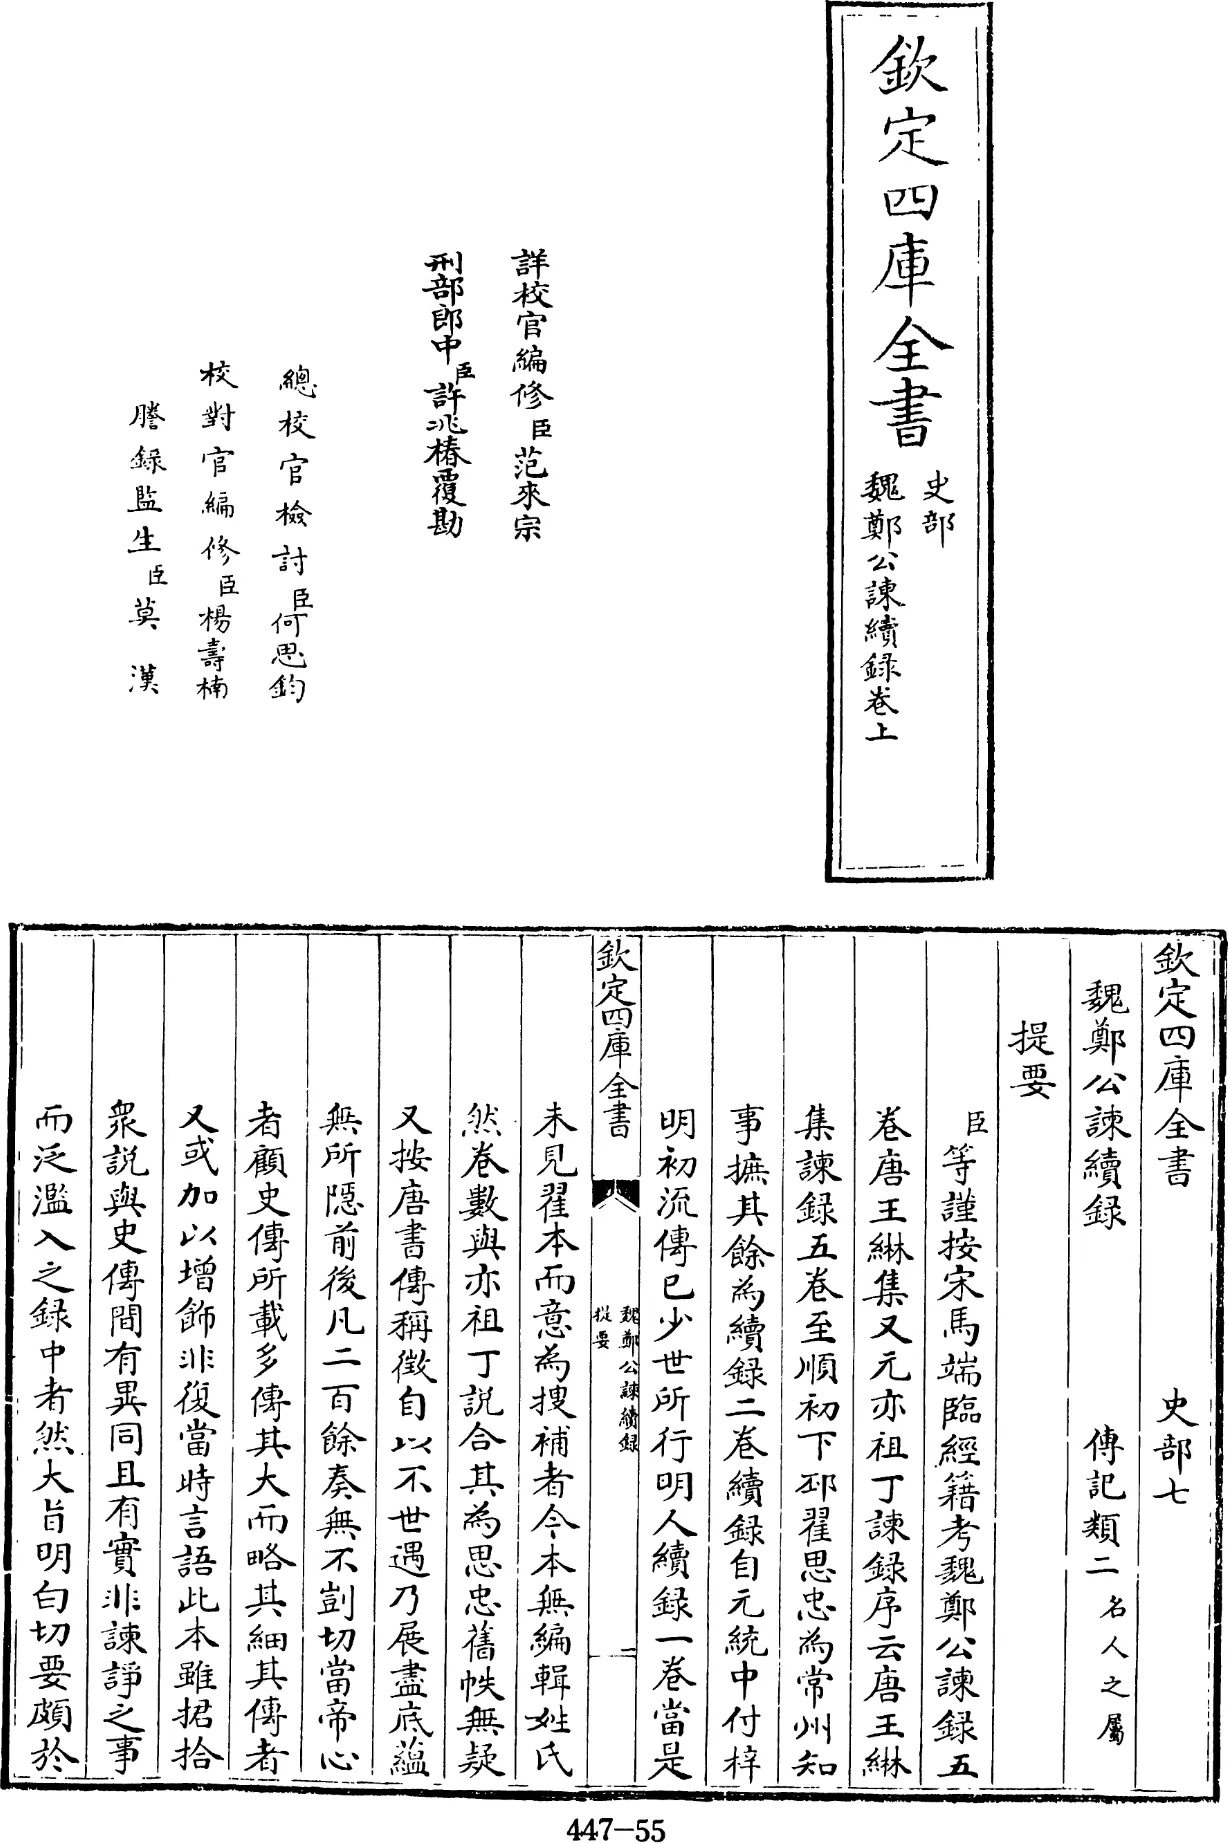 欽定四庫全書
史部
魏鄭公諫續錄卷上
詳校官編修臣范來宗
刑部郎中臣許兆椿覆勘
總校官檢討臣何思鈞
校對官編修臣楊壽楠
謄錄監生臣莫漢
欽定四庫全書 史部七
魏鄭公諫續録 傳記類二名人之屬
提要
臣等謹按宋馬端臨經籍考魏鄭公諫録五
卷唐王綝集又元亦祖丁諫録序云唐王綝
集諫録五卷至順初下邳翟思忠為常州知
事摭其餘為續録二卷續録自元統中付梓
明初流傳已少世所行明人續録一卷當是
欽定四庫全書
魏鄭公諫續録
提要
二
未見翟本而意為搜補者今本無編輯姓氏
然卷數與亦祖丁説合其為思忠舊帙無疑
又按唐書傳稱徵自以不世遇乃展盡底蘊
無所隠前後凡二百餘奏無不剴切當帝心
者顧史傳所載多傳其大而略其細其傳者
又或加以增飾非復當時言語此本雖捃拾
衆説與史傳間有異同且有實非諫諍之事
而泛濫入之録中者然大旨明白切要頗於
447-55